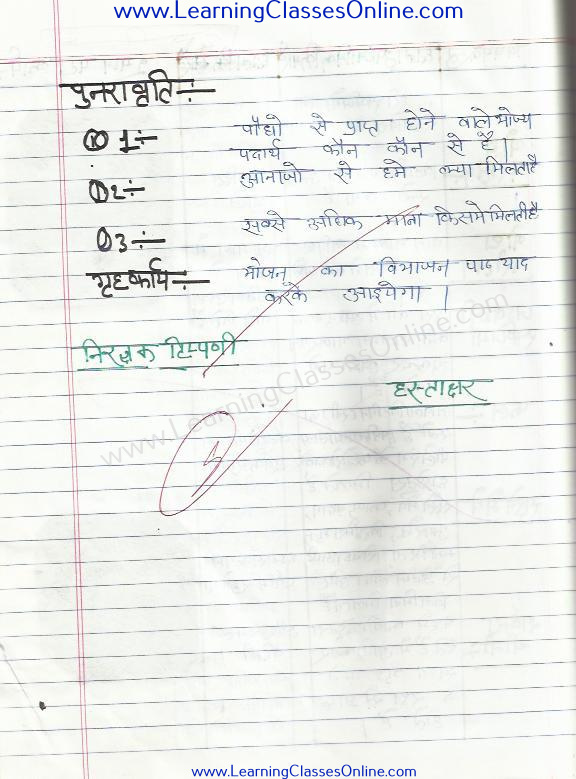 www.LearningClassesOnline.com
पुनरावृति:-
Q 1:- पौधो से प्राप्त होने वाले भोज्य
पदार्थ कौन कौन से है।
Q2:- आनाजो से हमे क्या मिलता है
Q3:- सबसे अधिक मात्रा किसमे मिलती है
गृहकार्य:- भोजन का विभाजन पाठ याद
करके आइयेगा।
निरक्षक टिप्पणी
हस्ताक्षर
www.LearningClassesOnline.com
www.LearningClassesOnline.com